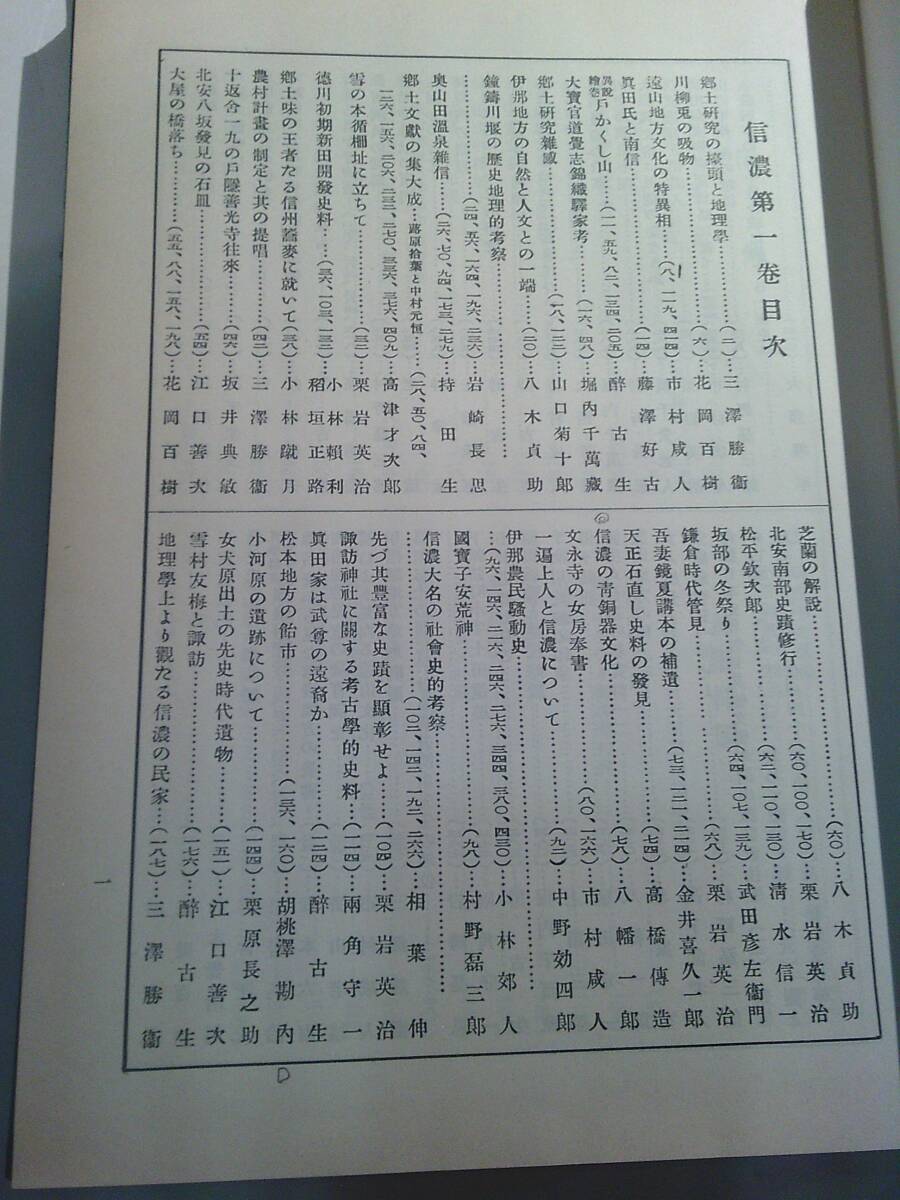 信濃第一卷目次
鄕土硏究の擡頭と地理學……………(二)…三澤勝衞
川柳兎の吸物……………(六)…花岡百樹
遠山地方文化の特異相……(八、一一九、四一四)…市村咸人
眞田氏と南信……………(一四)…藤澤好古
異說繪卷戶かくし山……(一一、五九、八二、一三四、二〇五)…醉古生
大寶官道覺志錦織驛家考……(一六、四八)…堀內千萬藏
鄕土硏究雜感……………(一八、一二三)…山口菊十郞
伊那地方の自然と人文との一端……(二〇)…八木貞助
鐘鑄川堰の歷史地理的考察……………
……………(二四、五六、一六四、一九六、二三六)…岩崎長思
奧山田溫泉雜信……(二六、七〇、九四、一七三、二七九)…持田生
鄕土文獻の集大成…蕗原拾葉と中村元恒……(二八、五〇、八四、
一二六、一五六、二〇六、二三二、二七〇、三三六、三七六、四〇九)…高津才次郞
雪の本循柵址に立ちて……………(三二)…栗岩英治
德川初期新田開發史料……(三六、一〇三、一三二)…小林賴利 稻垣正路
鄕土味の王者たる信州蕎麥に就いて(三八)…小林蹴月
農村計畫の制定と其の提唱……………(四二)…三澤勝衞
十返舍一九の戶隱善光寺往來……………(四六)…坂井典敏
北安八坂發見の石皿……………(五四)…江口善次
大屋の橋落ち……………(五五、八八、一五八、一九八)…花岡百樹
芝蘭の解說……………(六〇)…八木貞助
北安南部史蹟修行……………(六〇、一〇〇、一七〇)…栗岩英治
松平欽次郞……………(六二、一一〇、一三〇)…淸水信一
坂部の冬祭り……………(六四、一〇七、一三九)…武田彥左衞門
鎌倉時代管見……………(六八)…栗岩英治
吾妻鏡夏講本の補遺……(七三、一二一、二一四)…金井喜久一郞
天正石直し史料の發見……………(七四)…高橋傳造
信濃の靑銅器文化……………(七八)…八幡一郞
文永寺の女房奉書……………(八〇、一六六)…市村咸人
一遍上人と信濃について……………(九二)…中野効四郞
伊那農民騷動史……………
…(九六、一四六、二一六、二四六、二七六、三四四、三八〇、四三〇)…小林郊人
國寶子安荒神……………(九八)…村野磊三郞
信濃大名の社會史的考察……………
……………(一〇二、一四二、一九二、二六六)…相葉伸
先づ其豐富な史蹟を顯彰せよ……(一〇四)…栗岩英治
諏訪神社に關する考古學的史料……(一一四)…兩角守一
眞田家は武尊の遠裔か……………(一二四)…醉古生
松本地方の飴市……………(一三六、一六〇)…胡桃澤勘內
小河原の遺跡について……………(一四四)…栗原長之助
女犬原出土の先史時代遺物……(一五一)…江口善次
雪村友梅と諏訪……………(一七六)…醉古生
地理學上より觀たる信濃の民家……(一八七)…三澤勝衞
一
D